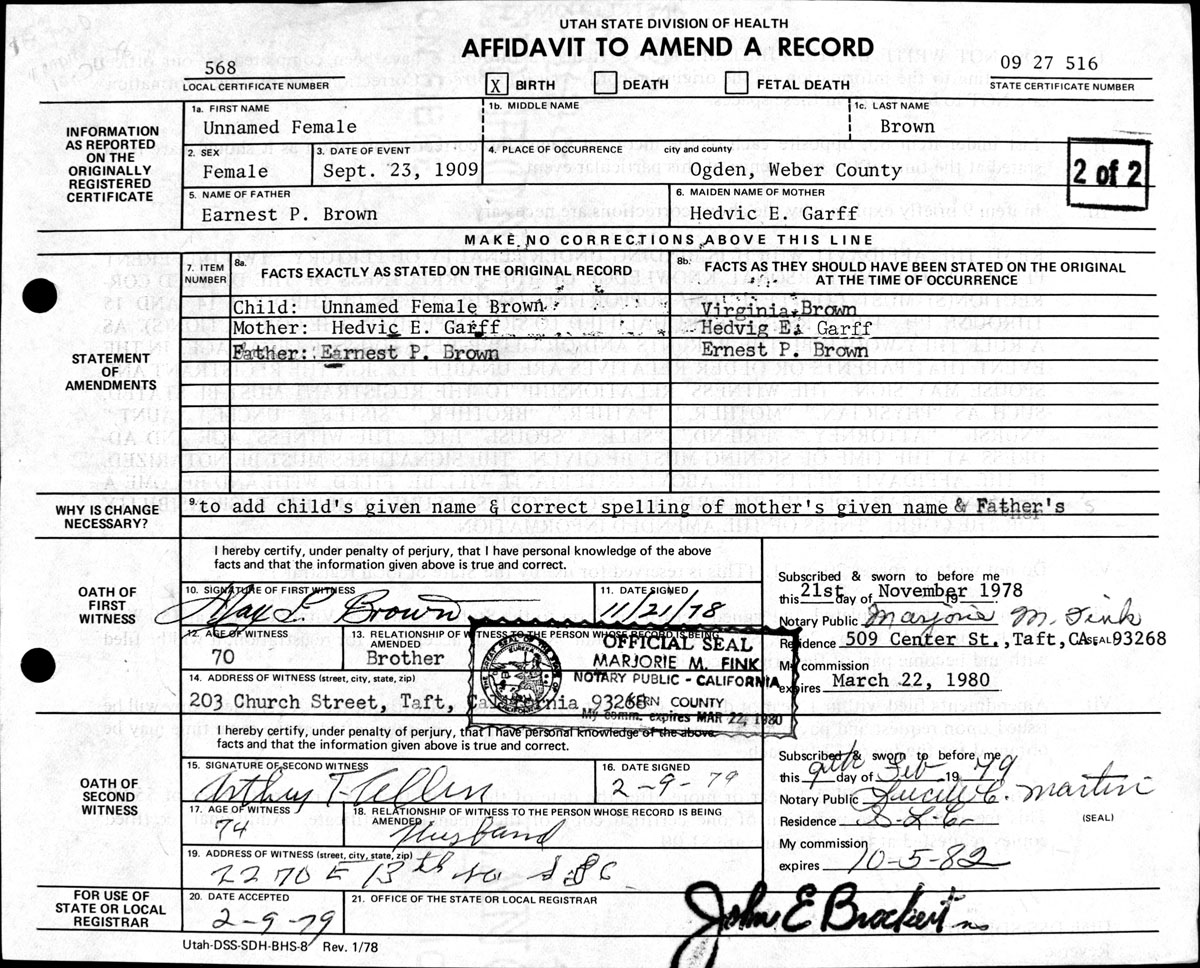 UTAH STATE DIVISION OF HEALTH
AFFIDAVIT TO AMEND A RECORD
568
LOCAL CERTIFICATE NUMBER
X BIRTH DEATH FETAL DEATH
09 27 516
STATE CERTIFICATE NUMBER
INFORMATION AS REPORTED ON THE ORIGINALLY REGISTERED CERTIFICATE
1a. FIRST NAME 1b. MIDDLE NAME 1c. LAST NAME
Unnamed Female Brown
2. SEX 3. DATE OF EVENT 4. PLACE OF OCCURRENCE city and county
Female Sept. 23, 1909 Ogden, Weber County
2 of 2
5. NAME OF FATHER 6. MAIDEN NAME OF MOTHER
Earnest P. Brown Hedvic E. Garff
MAKE NO CORRECTIONS ABOVE THIS LINE
STATEMENT OF AMENDMENTS
7. ITEM NUMBER 8a. FACTS EXACTLY AS STATED ON THE ORIGINAL RECORD 8b. FACTS AS THEY SHOULD HAVE BEEN STATED ON THE ORIGINAL AT THE TIME OF OCCURRENCE
Child: Unnamed Female Brown Virginia Brown
Mother: Hedvic E. Garff Hedvig E. Garff
Father: Earnest P. Brown Ernest P. Brown
WHY IS CHANGE NECESSARY?
9. to add child's given name & correct spelling of mother's given name & Father's
OATH OF FIRST WITNESS
I hereby certify, under penalty of perjury, that I have personal knowledge of the above
facts and that the information given above is true and correct.
10. SIGNATURE OF FIRST WITNESS 11. DATE SIGNED
L. Brown 11/21/78
12. AGE OF WITNESS 13. RELATIONSHIP OF WITNESS TO THE PERSON WHOSE RECORD IS BEING AMENDED
70 Brother
14. ADDRESS OF WITNESS (street, city, state, zip)
203 Church Street, Taft, California 93268
OFFICIAL SEAL
MARJORIE M. FINK
NOTARY PUBLIC - CALIFORNIA
KERN COUNTY
My comm. expires MAR 22, 1980
Subscribed & sworn to before me
this 21st day of November 1978
Notary Public Marjorie M. Fink
Residence 509 Center St., Taft, CA. (SEAL) 93268
My commission
expires March 22, 1980
OATH OF SECOND WITNESS
I hereby certify, under penalty of perjury, that I have personal knowledge of the above
facts and that the information given above is true and correct.
15. SIGNATURE OF SECOND WITNESS 16. DATE SIGNED
Arthur T. 2-9-79
17. AGE OF WITNESS 18. RELATIONSHIP OF WITNESS TO THE PERSON WHOSE RECORD IS BEING AMENDED
74 Husband
19. ADDRESS OF WITNESS (street, city, state, zip)
2270 E 13th So
Subscribed & sworn to before me
this 9th day of Feb 1979
Notary Public Lucile C. Martin
Residence S-L-C (SEAL)
My commission
expires 10-5-82
FOR USE OF STATE OR LOCAL REGISTRAR
20. DATE ACCEPTED 21. OFFICE OF THE STATE OR LOCAL REGISTRAR
2-9-79 John E Brockert
Utah-DSS-SDH-BHS-8 Rev. 1/78